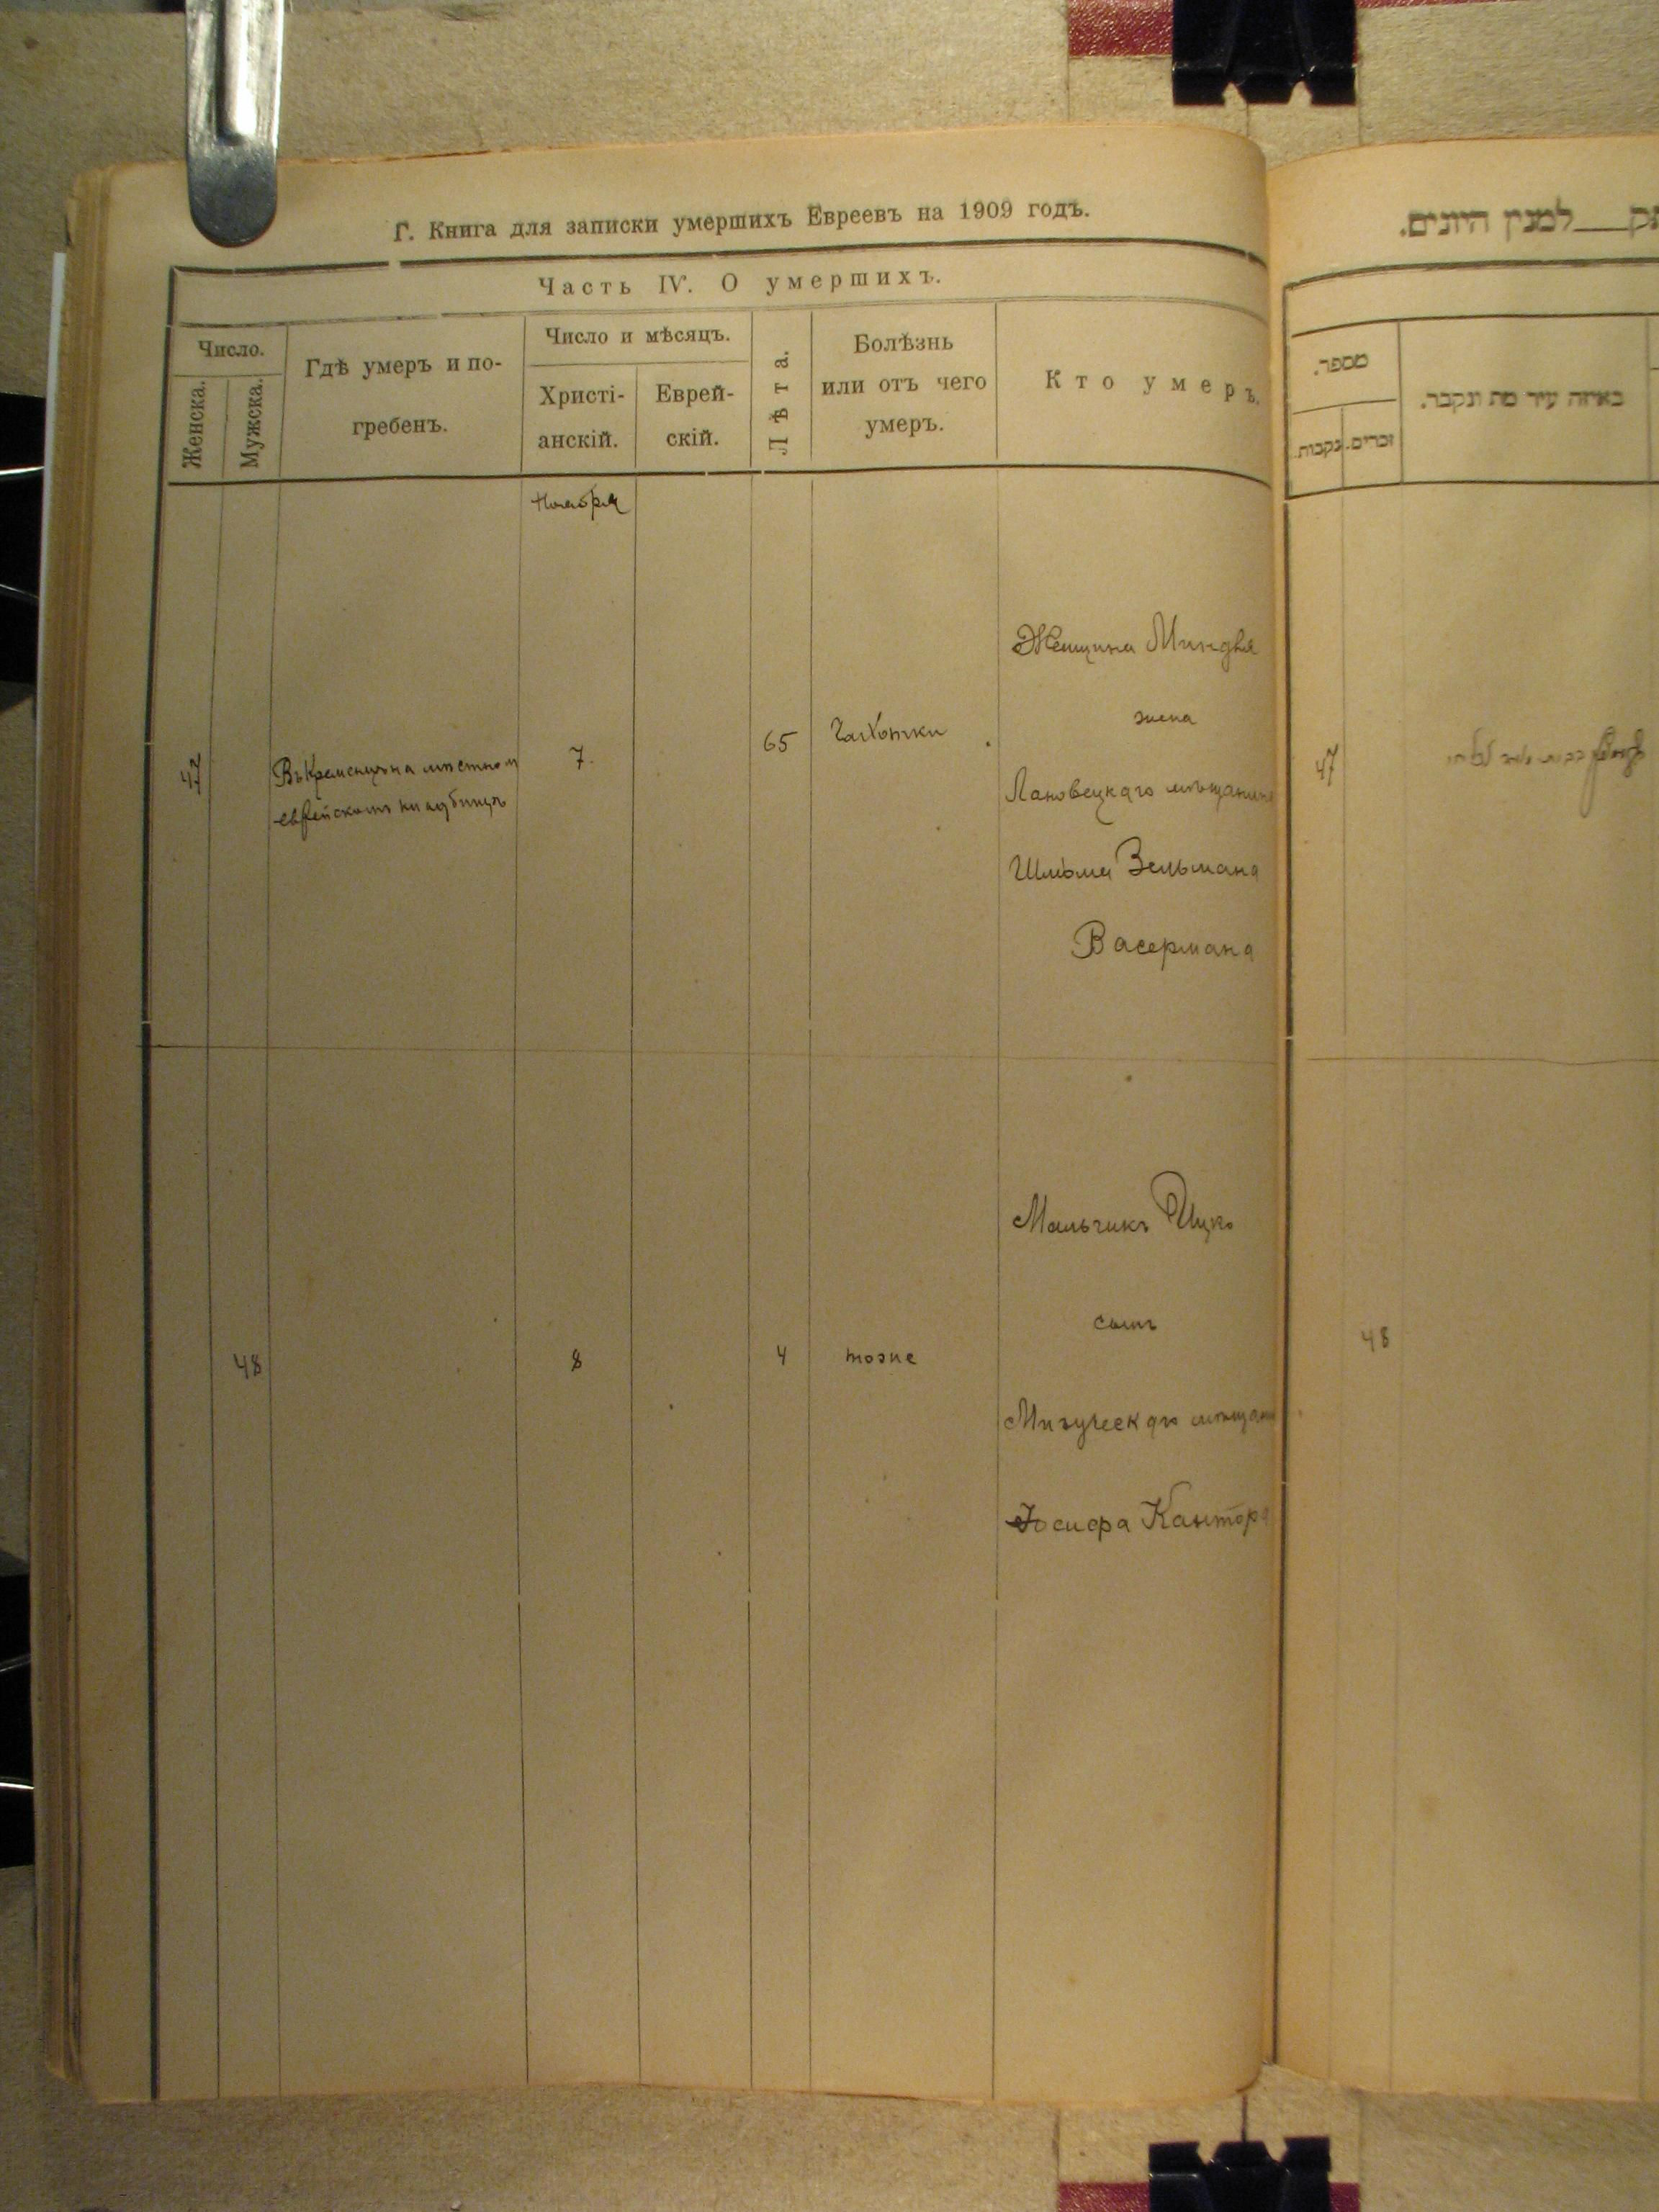 Г. Книга для записки умершихъ Евреевъ на 1909 годъ.
Часть IV. О умершихъ.
Число.
Женска.
Мужска.
Гдѣ умеръ и по-
гребенъ.
Число и мѣсяцъ.
Христі-
анскій.
Еврей-
скій.
Лѣта.
Болѣзнь
или отъ чего
умеръ.
Кто умеръ.
Ноября
47
Въ Кременцѣ на мѣстном
еврейскомъ кладбищѣ
7.
65
Чахотки
Женщина Миндля
жена
Лановецкаго мѣщанина
Шлёмы Зельмана
Васермана
48
8
4
тоже
Мальчикъ Ицко
сынъ
мѣщан
Іосифа Кантора
למנין היונים.
מספר.
זכרים.
נקבות.
באיזה עיר מת ונקבר.
47
48